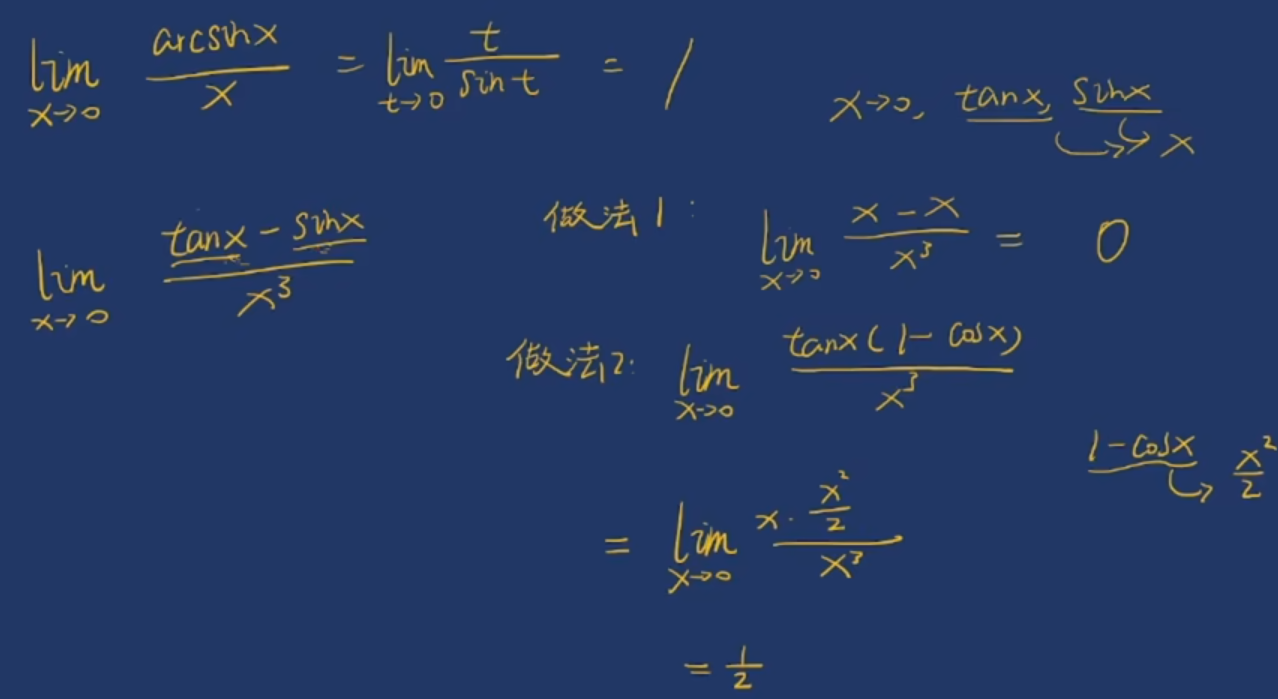 lim x→0 arcsinx / x = lim t→0 t / sin t = 1
x→0, tanx, sinx → x
lim x→0 (tanx - sinx) / x³
做法1: lim x→0 (x - x) / x³ = 0
做法2: lim x→0 tanx(1 - cosx) / x³
1 - cosx → x² / 2
= lim x→0 (x · x² / 2) / x³
= 1/2